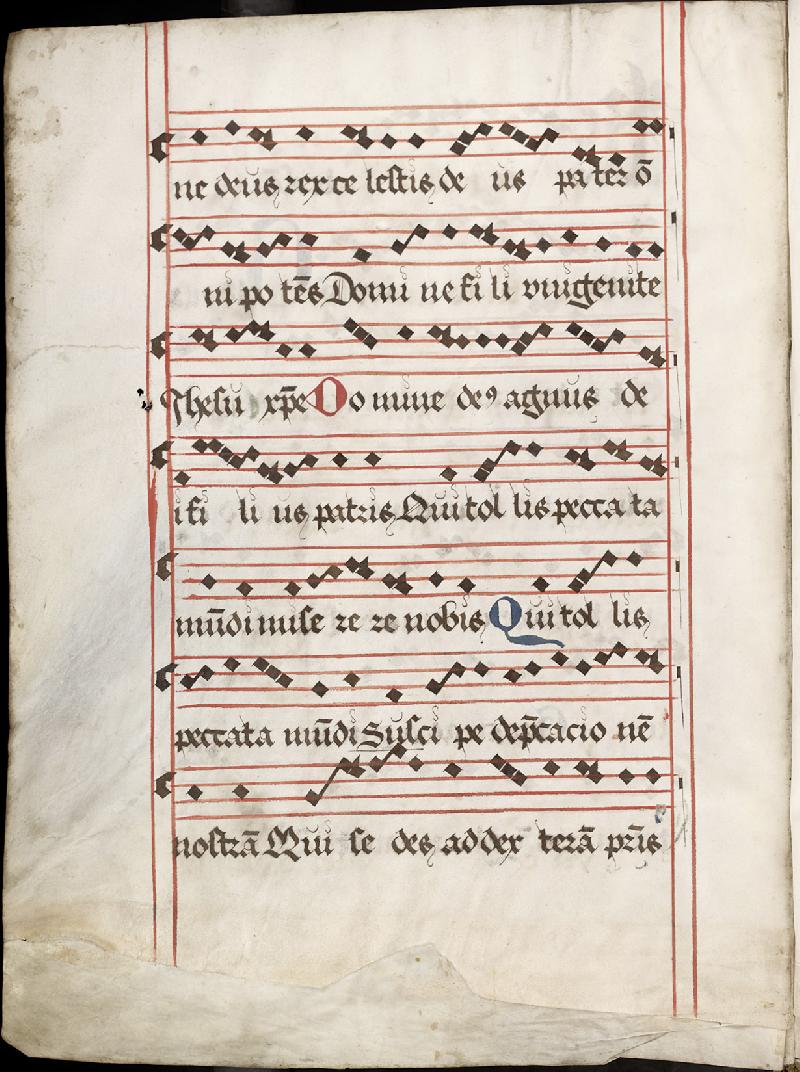 ne deus rex ce lestis de us pa ter ō
ni po tēs Domi ne fi li vnigenite
Jhesu xp̄e Do mine deꝰ agnus de
i fi li us patris Qui tol lis pecca ta
mūdi mise re re nobis Qui tol lis
peccata mūdi Susci pe dep̄cacio nē
nostrā Qui se des ad dex terā pr̄is